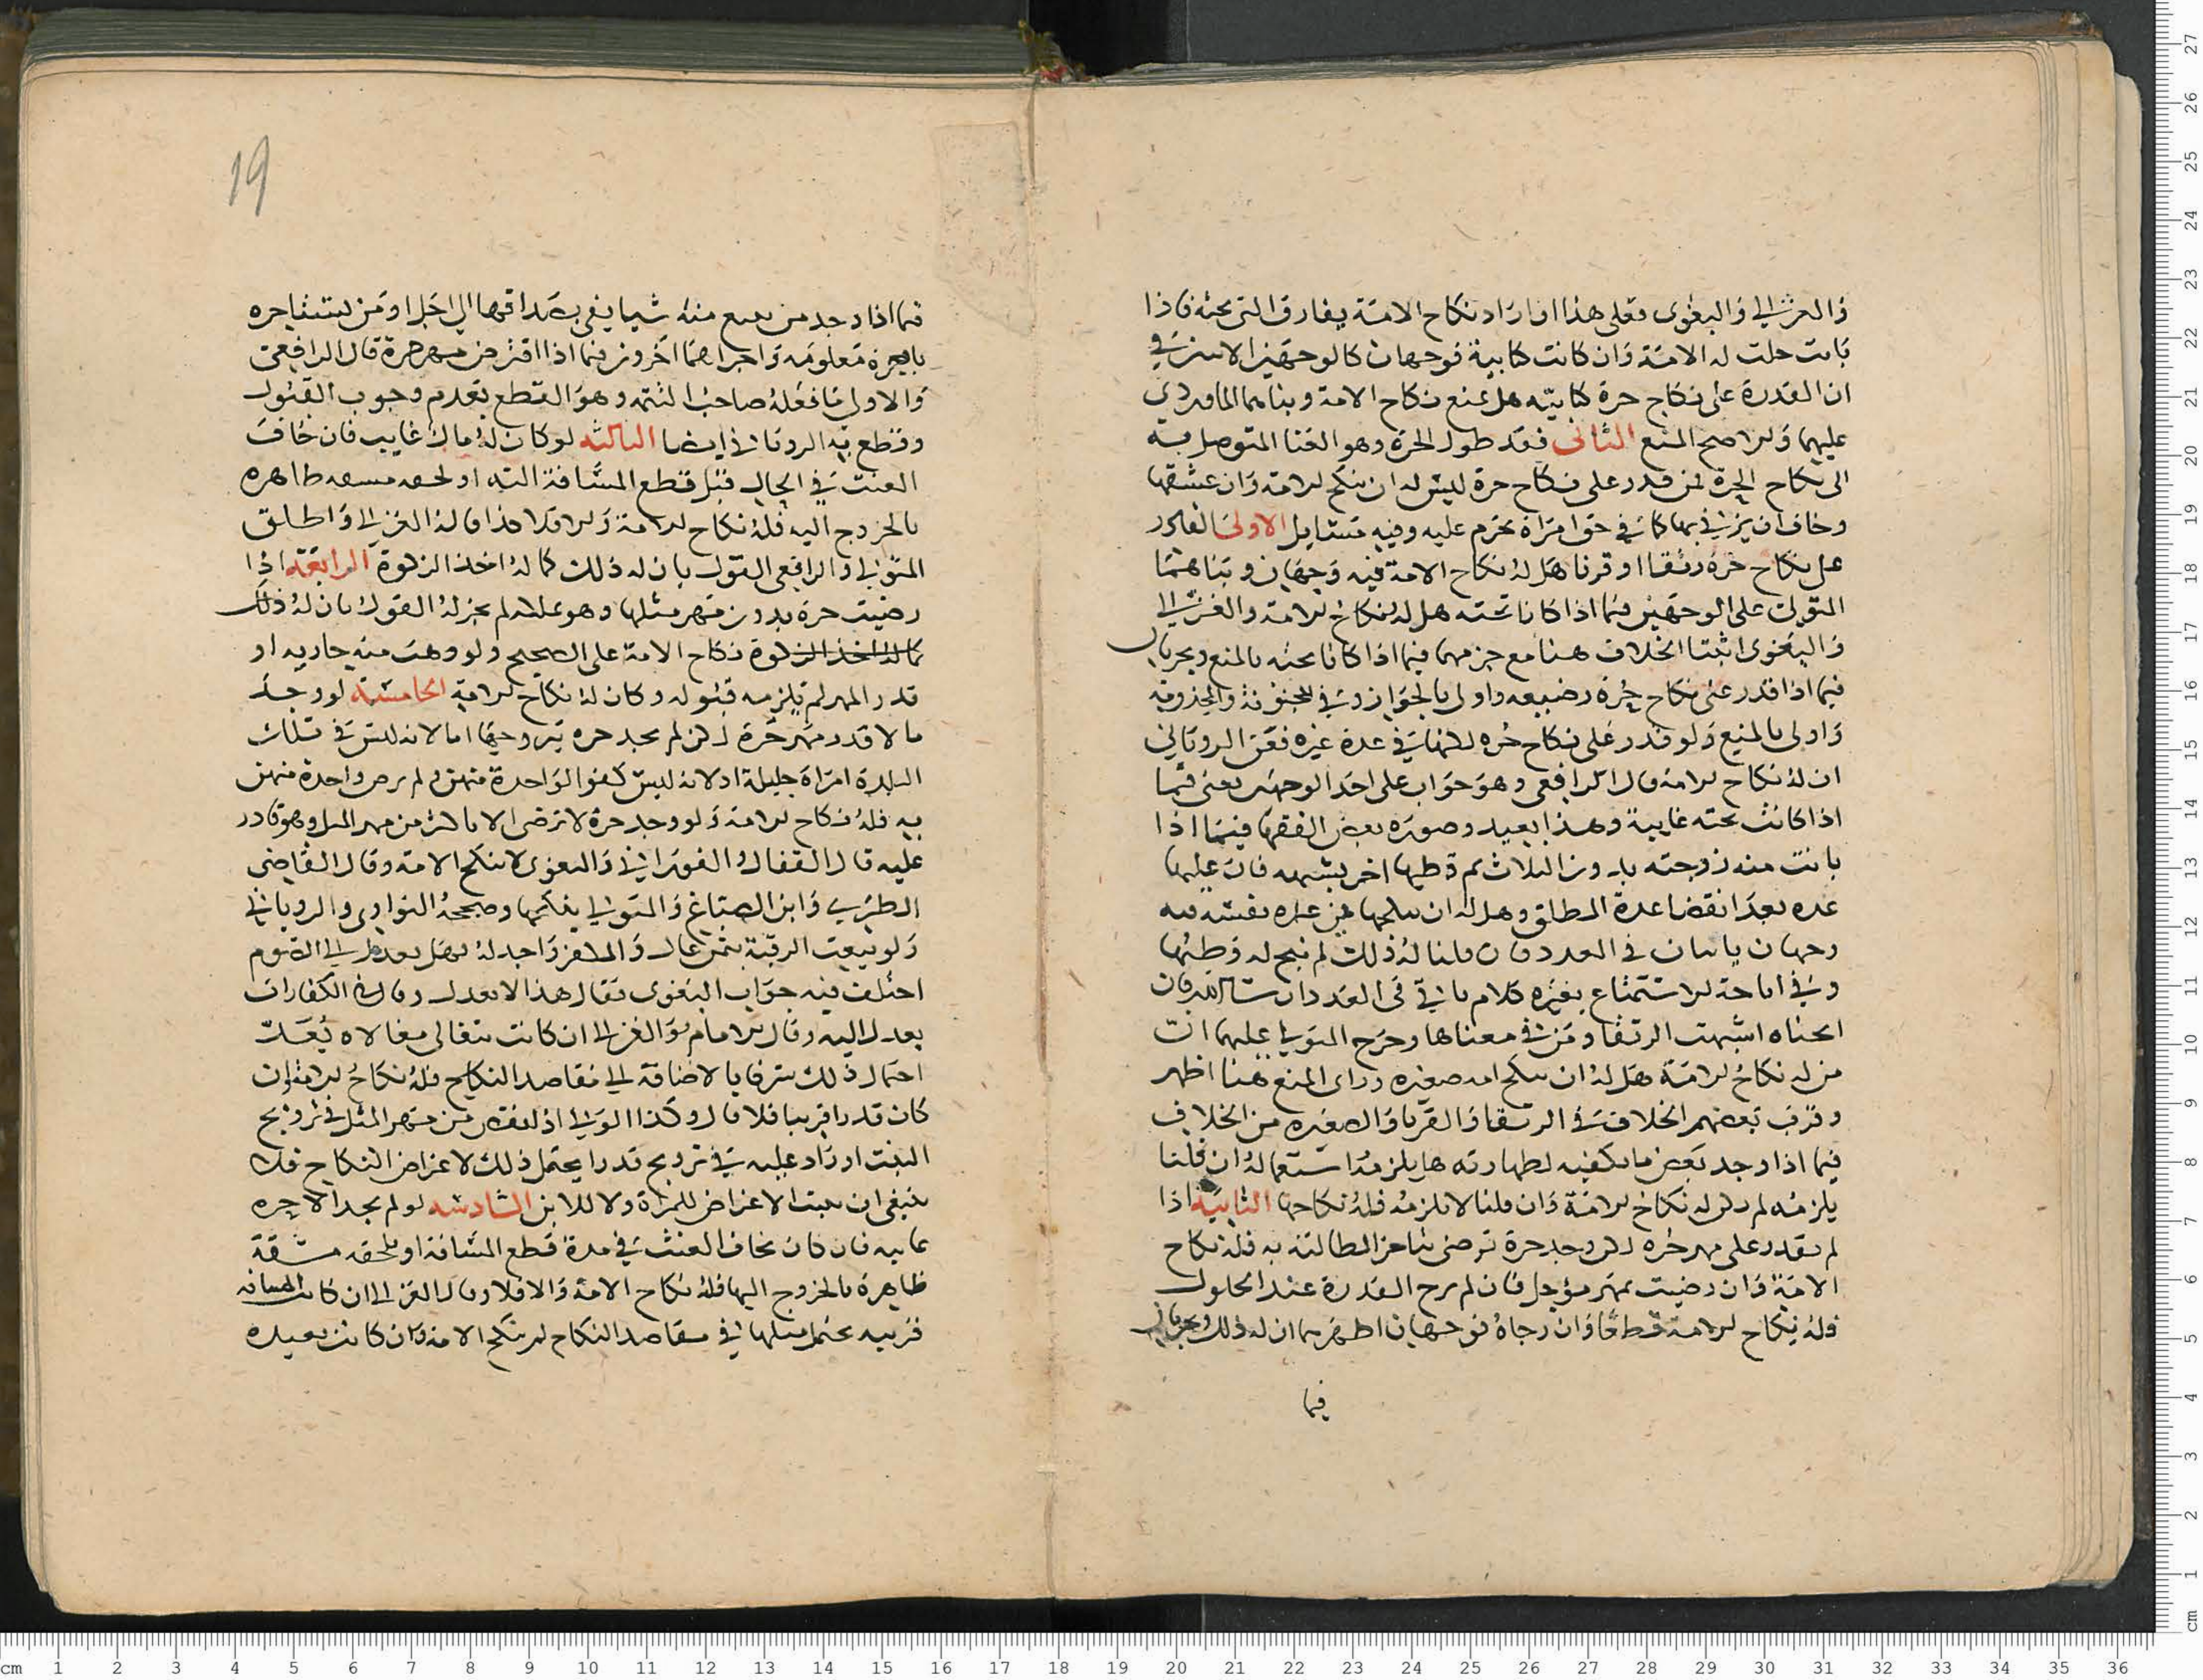 والغزالي والبغوي فعلى هذا اذا اراد نكاح الامة يفارق التي تحته فاذا
بانت حلت له الامة وان كانت كتابية فوجهان كالوجهين الاتيين في
ان القدرة على نكاح حرة كتابيه هل تمنع نكاح الامة وبناهما الماوردي
عليهما والاصح المنع الثاني فقد طول الحرة وهو الغنا المتوصل به
الى نكاح الحرة فمن قدر على نكاح حرة ليس له ان ينكح الامة وان عشقها
وخاف ان يزني بها كما في حق امراة تحرم عليه وفيه مسايل الاولى القادر
على نكاح حره رتقا او قرنا هل له نكاح الامة فيه وجهان وبناهما
المتولي على الوجهين فيما اذا كانا تحته هل له نكاح الامة والغزالي
والبغوي اثبتا الخلاف هنا مع جزمهما فيما اذا كانا تحته بالمنع ويجريان
فيما اذا قدر على نكاح حرة رضيعه واولى بالجواز وفي المجنونة والمجذومة
واولى بالمنع ولو قدر على نكاح حره لكنها في عدة غيره فعن الروياني
ان له نكاح الامة قال الرافعي وهو جواب على احد الوجهين يعني فيما
اذا كانت تحته غايبة وهذا بعيد وصوره بعض الفقها فيما اذا
بانت منه زوجته بدون الثلاث ثم وطيها اخر بشبهه فان عليها
عده بعد انقضا عدة المطلق وهل له ان ينكحها في عده نفسه فيه
وجهان ياتيان في العدد فان قلنا له ذلك لم يبح له وطيها
وفي اباحة الاستمتاع بغيره كلام ياتي في العدد ان شا الله فان
ابحناه اشبهت الرتقا ومن في معناها وخرج المتولي عليهما ان
من له نكاح الامة هل له ان ينكح امه صغيره وراى المنع هنا اظهر
وقرب بعضهم الخلاف في الرتقا والقرنا والصغيره من الخلاف
فيما اذا وجد بعض ما يكفيه لطهارته هل يلزمه استعماله ان قلنا
يلزمه لم يكن له نكاح الامة وان قلنا لا يلزمه فله نكاحها الثانية اذا
لم يقدر على مهر حره لكن وجد حرة ترضى بتاخر المطالبة به فله نكاح
الامة وان رضيت بمهر مؤجل فان لم يرج القدرة عند الحلول
فله نكاح الامة قطعا وان رجاه فوجهان اظهرهما ان له ذلك ويجريان
فيما
19
فيما اذا وجد من يبيع منه شيا يفي بصداقها الى اجل او من يستاجره
باجرة معلومه واجراهما اخرون فيما اذا اقترض مهر حرة قال الرافعي
والاولى ما فعله صاحب التتمة وهو القطع بعدم وجوب القبول
وقطع به الروياني ايضا الثالثه لو كان له مال غايب فان خاف
العنت في الحال قبل قطع المسافة اليه او لحقه مشقه ظاهره
بالخروج اليه فله نكاح الامة والا فلا هذا قاله الغزالي واطلق
المتولي والرافعي القول بان له ذلك كما له اخذ الزكوة الرابعة اذا
رضيت حرة بدون مهر مثلها وهو يملكه لم يجز له القول بان له ذلك
كما له اخذ الزكوة نكاح الامة على الصحيح ولو وهبت منه جاريه او
قدر المهر لم يلزمه قبوله وكان له نكاح الامة الخامسة لو وجد
مالا قدر مهر حرة لكن لم يجد حره يتزوجها اما لانه ليس في تلك
البلدة امراة جليلة او لانه ليس كفوا لواحدة منهن ولم يرض واحدة منهن
به فله نكاح الامة ولو وجد حرة لا ترضى الا باكثر من مهر المثل وهو قادر
عليه قال القفال والفوراني والبغوي لا ينكح الامة وقال القاضي
الطبري وابن الصباغ والمتولي ينكحها وصححه النواوي والروياني
ولو بيعت الرقبة بثمن غال والمكفر واجد له فهل يعدل الى الصوم
اختلف فيه جواب البغوي فقال هذا لا يعدل وقال في الكفارات
يعدل اليه وقال الامام والغزالي ان كانت تتغالى مغالاه يعد
احتمال ذلك سرفا بالاضافة الى مقاصد النكاح فله نكاح الامة وان
كان قدرا قريبا فلا قال وكذا الولي اذا نقص من مهر المثل في تزويج
البنت او زاد عليه في تزويج قدرا يحتمل ذلك لاغراض النكاح فلا
ينبغي ان يثبت الاعتراض للمراة ولا للابن السادسة لو لم يجد الا حره
غايبه فان كان يخاف العنت في مدة قطع المسافة او يلحقه مشقة
ظاهرة بالخروج اليها فله نكاح الامة والا فلا وقال الغزالي ان كانت المسافه
قريبه يحتمل مثلها في مقاصد النكاح لم ينكح الامة وان كانت بعيده